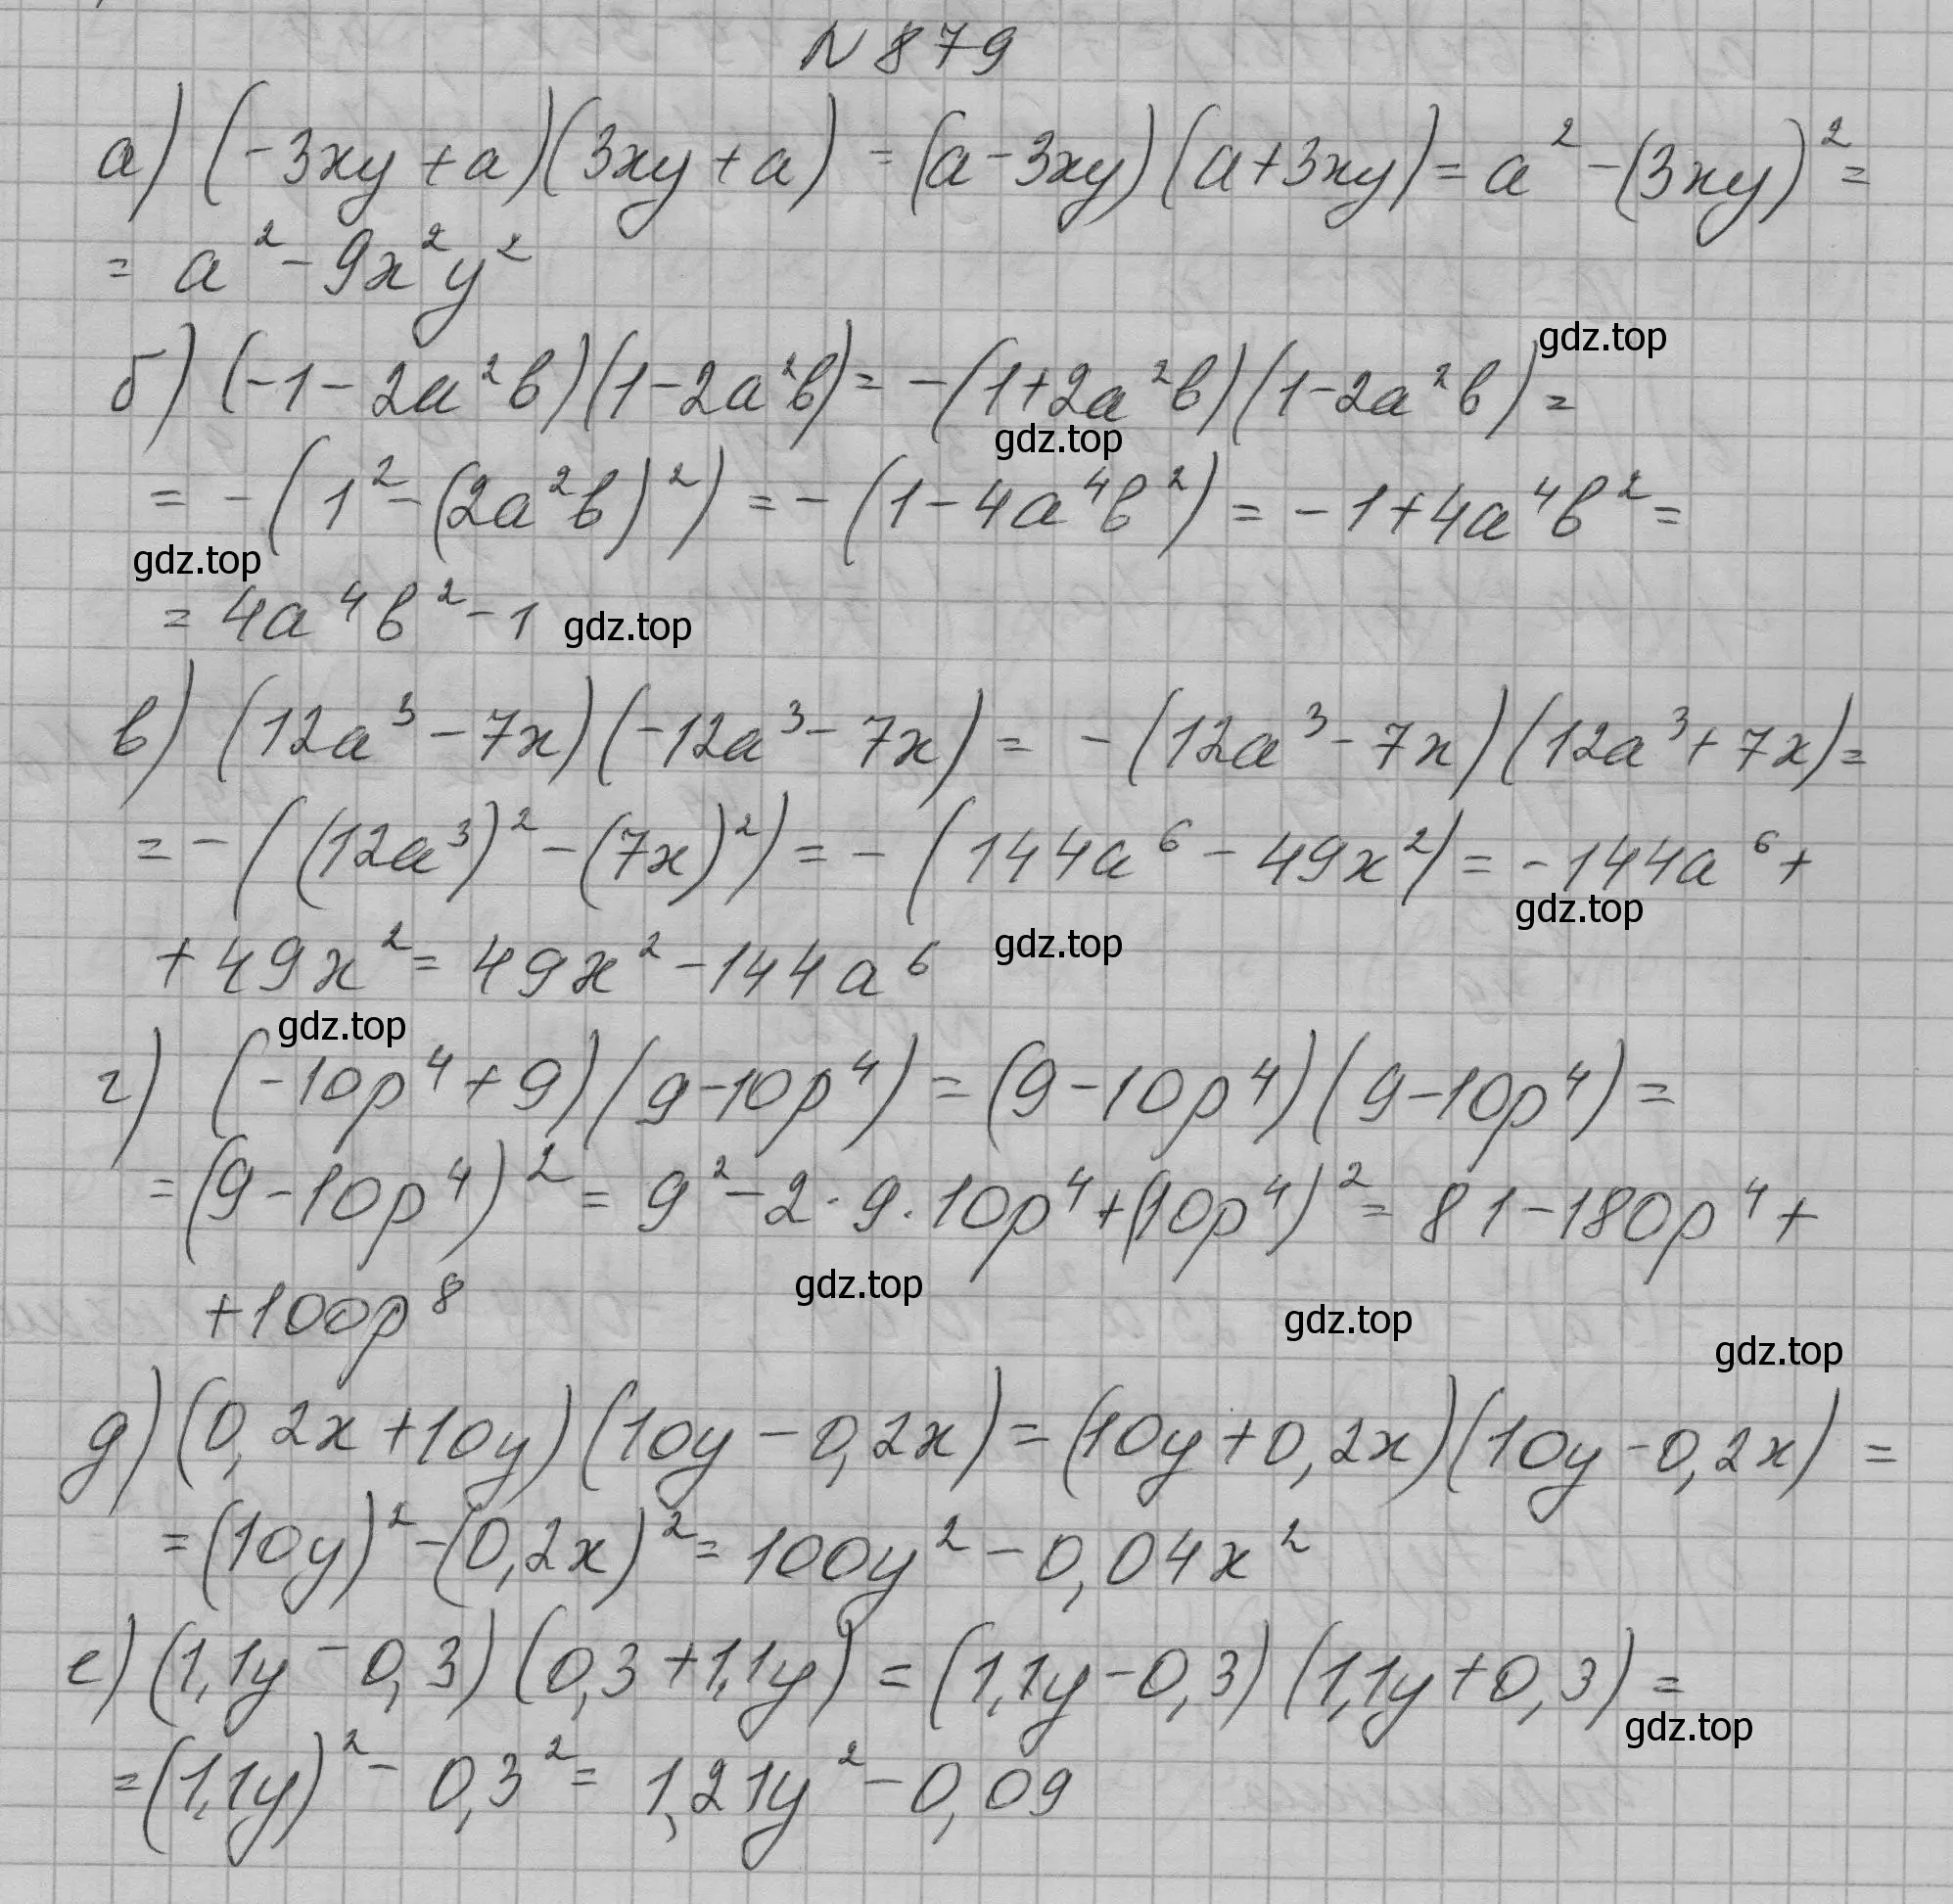 N 879
а) (-3xy + a)(3xy + a) = (a - 3xy)(a + 3xy) = a² - (3xy)² =
= a² - 9x²y²
gdz.top
б) (-1 - 2a²b)(1 - 2a²b) = -(1 + 2a²b)(1 - 2a²b) =
gdz.top
= -(1² - (2a²b)²) = -(1 - 4a⁴b²) = -1 + 4a⁴b² =
gdz.top
= 4a⁴b² - 1 gdz.top
в) (12a³ - 7x)(-12a³ - 7x) = -(12a³ - 7x)(12a³ + 7x) =
= -((12a³)² - (7x)²) = -(144a⁶ - 49x²) = -144a⁶ +
gdz.top
+ 49x² = 49x² - 144a⁶ gdz.top
gdz.top
г) (-10p⁴ + 9)(9 - 10p⁴) = (9 - 10p⁴)(9 - 10p⁴) =
= (9 - 10p⁴)² = 9² - 2 · 9 · 10p⁴ + (10p⁴)² = 81 - 180p⁴ +
+ 100p⁸ gdz.top
gdz.top
gdz.top
д) (0,2x + 10y)(10y - 0,2x) = (10y + 0,2x)(10y - 0,2x) =
= (10y)² - (0,2x)² = 100y² - 0,04x²
е) (1,1y - 0,3)(0,3 + 1,1y) = (1,1y - 0,3)(1,1y + 0,3) =
gdz.top
= (1,1y)² - 0,3² = 1,21y² - 0,09